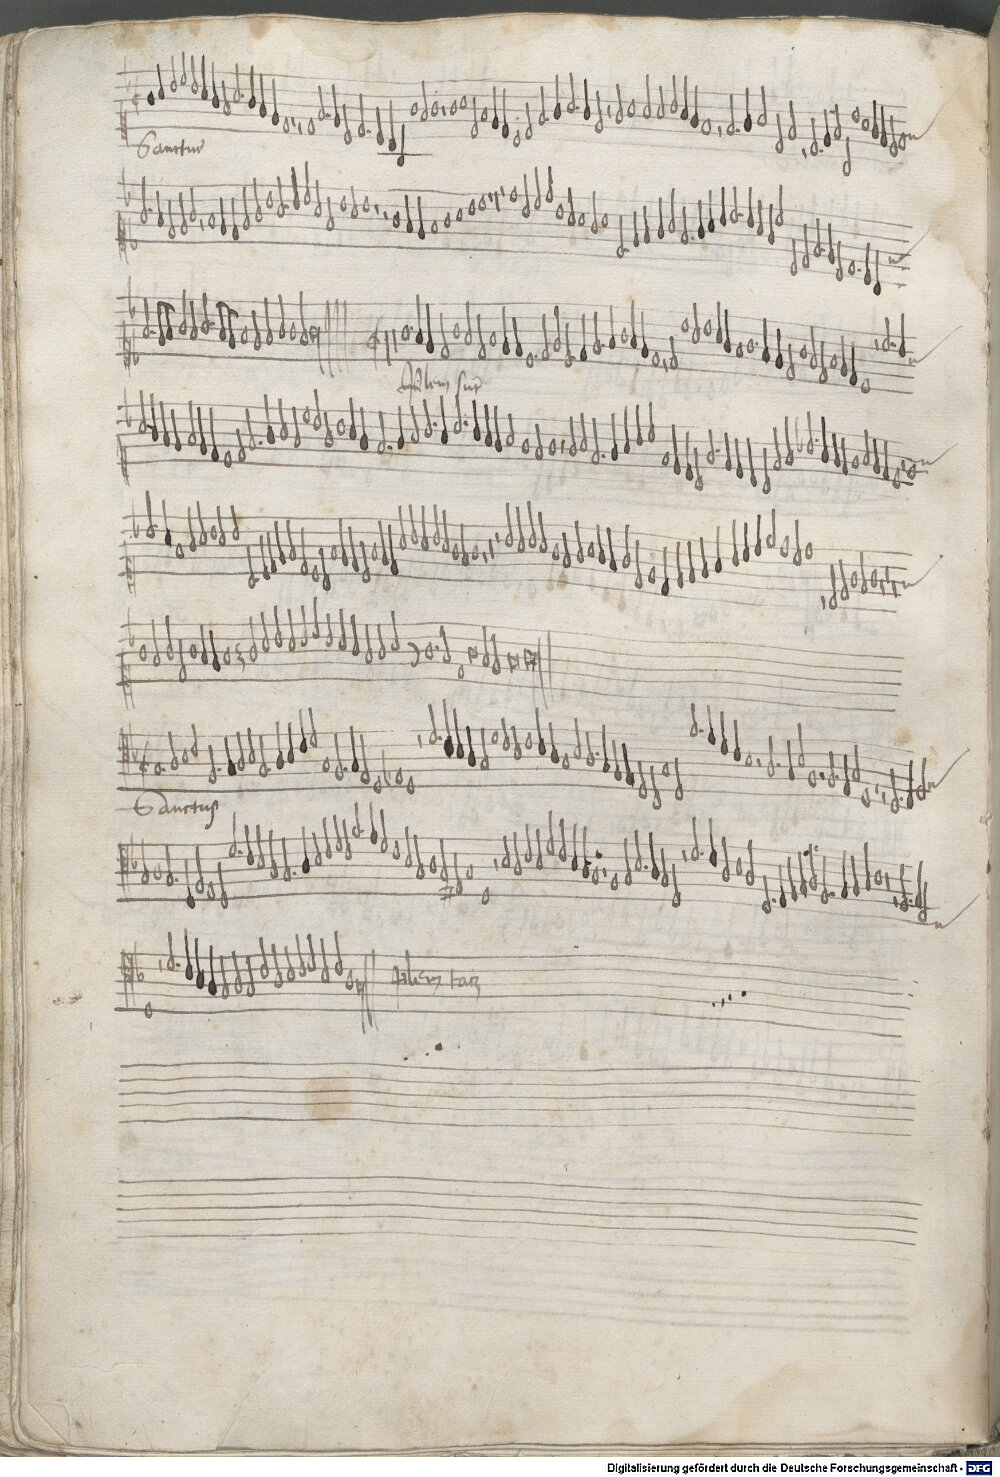 Sanctus
Plem sur
Sanctus
Plem tar
Digitalisierung gefördert durch die Deutsche Forschungsgemeinschaft - DFG